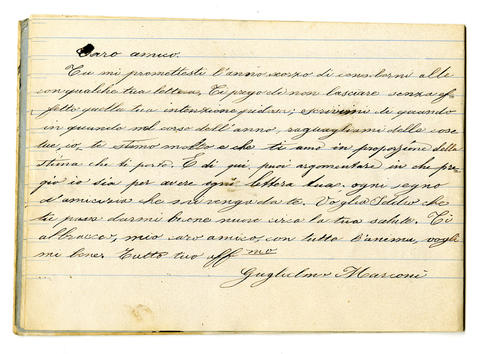 Caro amico.
Tu mi promettesti l'anno scorso di consolarmi alle
con qualche tua lettera. Ti prego di non lasciare senza ef-
fetto quella tua intenzione; scrivimi di quando
in quando nel corso dell'anno, ragguagliami delle cose
tue, io, te stimo molto e che ti amo in proporzione della
stima che ti porto. E di qui puoi argomentare in che pre-
gio io sia per avere ogni lettera tua. ogni segno
d'amicizia che mi venga da te. Voglia Iddio che
tu possa darmi buone nuove circa la tua salute. Ti
abbraccio, mio caro amico, con tutta l'anima, vogli
mi bene. Tutto tuo aff mo
Guglielmo Marconi